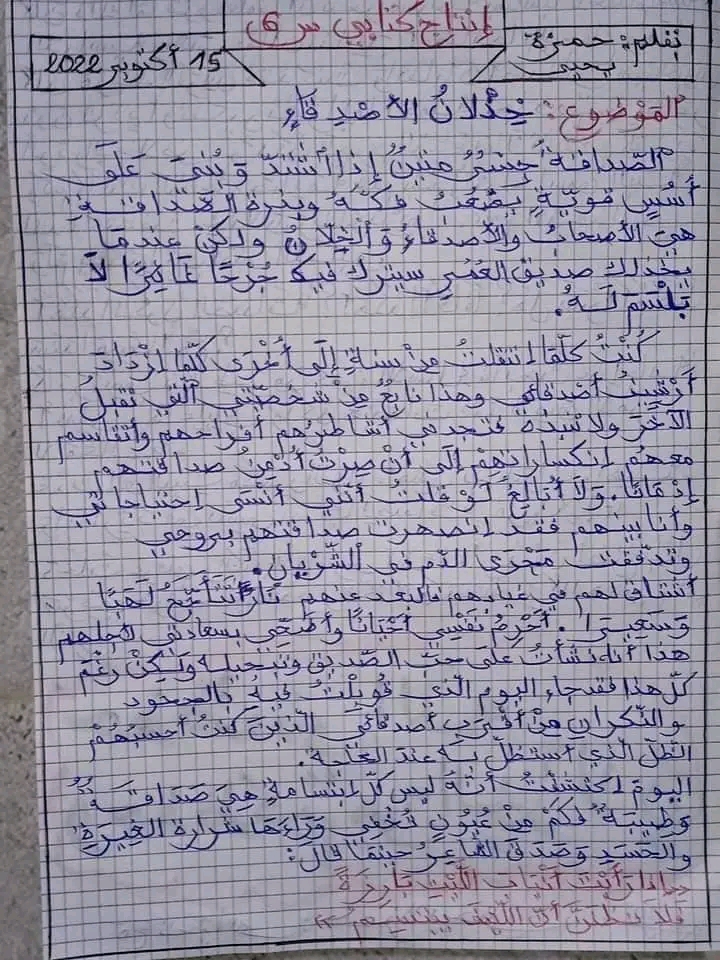 إنتاج كتابي س 6
بقلم: حمزة
يحيى
15 أكتوبر 2022
الموْضوع: خِذْلانُ الأصْدِقَاءِ
الصّداقة جِسْرٌ متينٌ إذا اشْتدّ وبُنيَ عَلَى
أُسُسٍ قويّةٍ يصْعُبُ فكّهُ وبذرة الصّداقةِ
هيَ الأصحابُ والأصدقاءُ وَالْخِلّانُ ولكنْ عندمَا
يخذلك صديق العُمْرِ سيترك فيكَ جُرْحًا غَائِرًا لاَ
بَلْسَمَ لَهُ.
كُنْتُ كلّمَا انتقلتُ مِنْ سنةٍ إِلَى أُخْرَى كلّما ازْدَادَ
أَرْشِيفُ أصْدقائي وهذا نابعٌ مِنْ شخصيّتي الّتي تقبلُ
الآخَرَ ولا تنبذهُ فتجدني أشاطرُهم أفراحهم وأتقاسم
معهُم انكساراتِهِمْ إلَى أَنْ صِرْتُ أُدْمِنُ صداقتهم
إدْمَانًا. وَلَا أُبَالِغُ لَوْ قلتُ أنّني أَنْسَى احتياجاتي
وأنا بينهم فقد انصهرت صداقتهم بروحي
وتدفّقت مَجْرَى الدّم في الشّرْيان.
أشتاق لهم في غيابهم فالبعد عنهم نَارٌ تتأجّجُ لَهَبًا
وَسَعِيرًا. أَحْرِمُ نَفْسِي أحْيَانًا وأضحّي بسعادتي لأجلهم
هذا أنا نشأتُ عَلَى حبّ الصّديق وتبجيله ولَكِنْ رغْمَ
كلّ هذا فقد جاء اليوم الّذي قُوبِلْتُ فيهِ بالجحود
والنّكرانِ مِنْ أقربِ أصدقائي الّذينَ كنتُ أحسبهُمْ
الظلّ الّذي أستظلّ بهِ عندَ العتمة.
اليوم اكتشفتُ أنّهُ ليس كلّ ابتسامةٍ هِيَ صَدَاقَةٌ
وَطيبَةٌ فكَمْ مِنْ عُيُونٍ تُخْفِي وَرَاءَهَا شرارة الغِيرَةِ
والحَسَدِ وَصَدَقَ الشّاعِرُ حينمَا قَالَ:
إِذَا رَأَيْتَ أَنْيَابَ اللَّيْثِ بَارِزَةً
فَلَا تَظُنَّنَّ أَنَّ اللَّيْثَ يَبْتَسِمُ